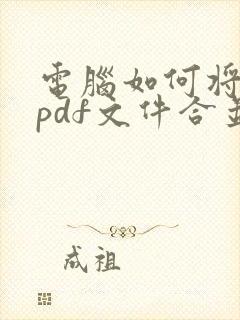 電腦如何將
pdf文件合並
成祖